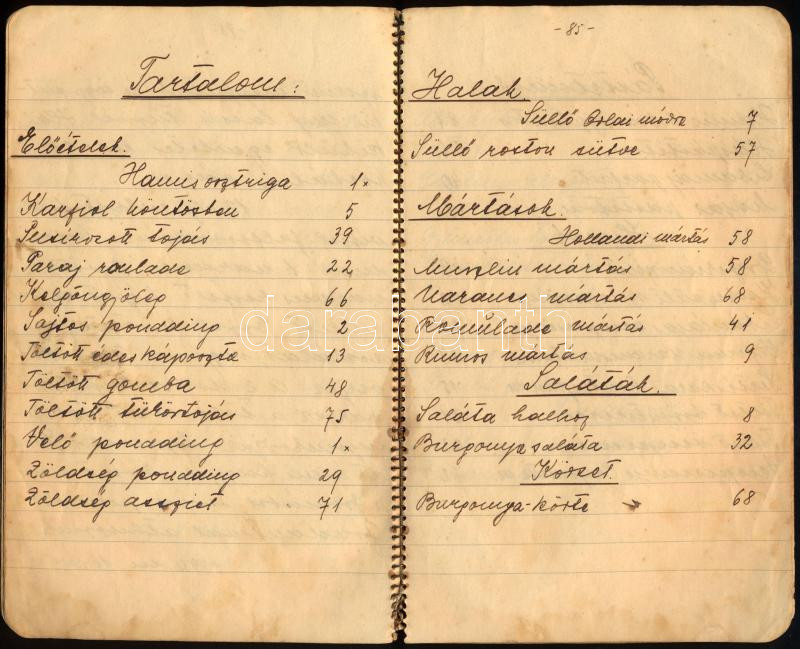 Tartalom:
Előételek.
Hamis osztriga 1 x
Karfiol köntösben 5
39 tojás
Paraj roulade 22
Kelgöngyöleg 66
Sajtos poudding 2
Töltött édeskáposzta 13
Töltött gomba 48
Töltött tükörtojás 75
Velő poudding 1 x
Zöldség poudding 29
Zöldség 71
-85-
Halak.
Süllő módra 7
Süllő roston sütve 57
Mártások.
Hollandi mártás 58
Muszlin mártás 58
Narancs mártás 68
Romulade mártás 41
Rumos mártás 9
Saláták.
Saláta halhoz 8
Burgonya saláta 32
Köret.
Burgonya-körte 68
darabanth.com